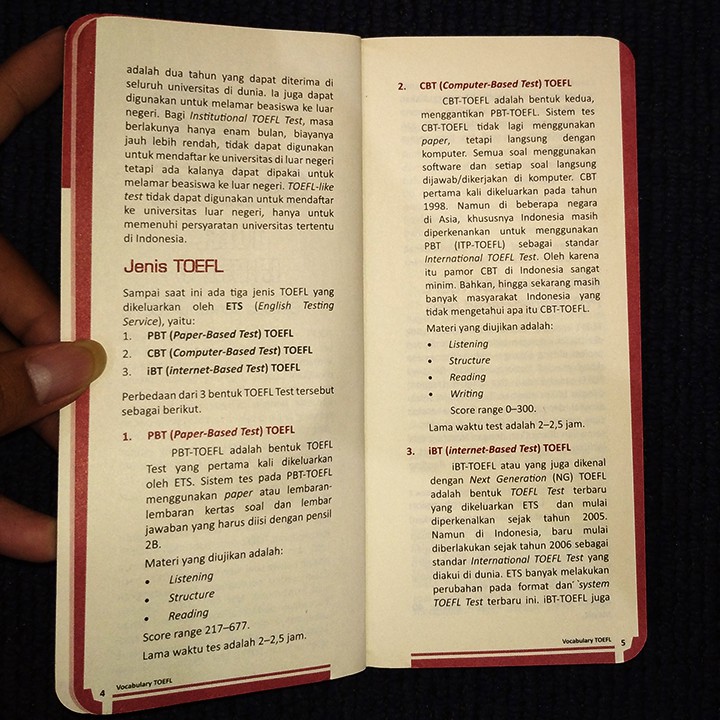 adalah dua tahun yang dapat diterima di
seluruh universitas di dunia. Ia juga dapat
digunakan untuk melamar beasiswa ke luar
negeri. Bagi Institutional TOEFL Test, masa
berlakunya hanya enam bulan, biayanya
jauh lebih rendah, tidak dapat digunakan
untuk mendaftar ke universitas di luar negeri
tetapi ada kalanya dapat dipakai untuk
melamar beasiswa ke luar negeri. TOEFL-like
test tidak dapat digunakan untuk mendaftar
ke universitas luar negeri, hanya untuk
memenuhi persyaratan universitas tertentu
di Indonesia.
Jenis TOEFL
Sampai saat ini ada tiga jenis TOEFL yang
dikeluarkan oleh ETS (English Testing
Service), yaitu:
1. PBT (Paper-Based Test) TOEFL
2. CBT (Computer-Based Test) TOEFL
3. iBT (internet-Based Test) TOEFL
Perbedaan dari 3 bentuk TOEFL Test tersebut
sebagai berikut.
1. PBT (Paper-Based Test) TOEFL
PBT-TOEFL adalah bentuk TOEFL
Test yang pertama kali dikeluarkan
oleh ETS. Sistem tes pada PBT-TOEFL
menggunakan paper atau lembaran-
lembaran kertas soal dan lembar
jawaban yang harus diisi dengan pensil
2B.
Materi yang diujikan adalah:
• Listening
• Structure
• Reading
Score range 217–677.
Lama waktu tes adalah 2–2,5 jam.
4 Vocabulary TOEFL
2. CBT (Computer-Based Test) TOEFL
CBT-TOEFL adalah bentuk kedua,
menggantikan PBT-TOEFL. Sistem tes
CBT-TOEFL tidak lagi menggunakan
paper, tetapi langsung dengan
komputer. Semua soal menggunakan
software dan setiap soal langsung
dijawab/dikerjakan di komputer. CBT
pertama kali dikeluarkan pada tahun
1998. Namun di beberapa negara
di Asia, khususnya Indonesia masih
diperkenankan untuk menggunakan
PBT (ITP-TOEFL) sebagai standar
International TOEFL Test. Oleh karena
itu pamor CBT di Indonesia sangat
minim. Bahkan, hingga sekarang masih
banyak masyarakat Indonesia yang
tidak mengetahui apa itu CBT-TOEFL.
Materi yang diujikan adalah:
• Listening
• Structure
• Reading
• Writing
Score range 0–300.
Lama waktu test adalah 2–2,5 jam.
3. iBT (internet-Based Test) TOEFL
iBT-TOEFL atau yang juga dikenal
dengan Next Generation (NG) TOEFL
adalah bentuk TOEFL Test terbaru
yang dikeluarkan ETS dan mulai
diperkenalkan sejak tahun 2005.
Namun di Indonesia, baru mulai
diberlakukan sejak tahun 2006 sebagai
standar International TOEFL Test yang
diakui di dunia. ETS banyak melakukan
perubahan pada format dan system
TOEFL Test terbaru ini. iBT-TOEFL juga
Vocabulary TOEFL 5